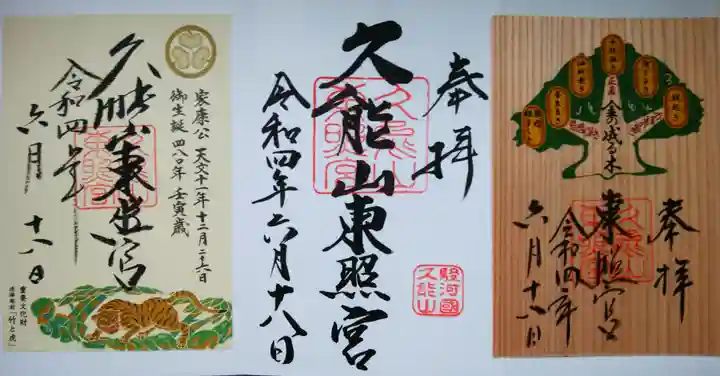 家康公 天文十一年十二月二十六日
御生誕 四八〇年 壬寅歳
久能山東照宮
令和四年
六月 十八日
重要文化財
「竹と虎」
奉拝
久能山東照宮
令和四年六月十八日
駿河國
久能山
金の成る木
正直
奉拝
東照宮
令和四年
六月十八日